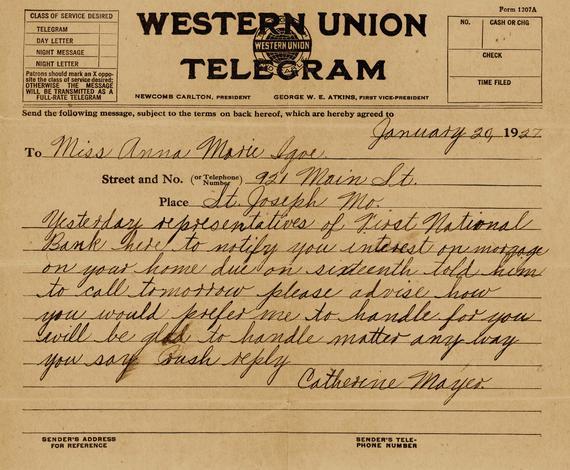 Form 1207A
CLASS OF SERVICE DESIRED
TELEGRAM
DAY LETTER
NIGHT MESSAGE
NIGHT LETTER
Patrons should mark an X oppo-
site the class of service desired;
OTHERWISE THE MESSAGE
WILL BE TRANSMITTED AS A
FULL-RATE TELEGRAM
WESTERN UNION
WESTERN UNION
TELEGRAM
NEWCOMB CARLTON, PRESIDENT GEORGE W. E. ATKINS, FIRST VICE-PRESIDENT
NO. CASH OR CHG
CHECK
TIME FILED
Send the following message, subject to the terms on back hereof, which are hereby agreed to
January 20, 1927
To Miss Anna Marie Igoe.
Street and No. (or Telephone Number) 921 Main St.
Place St. Joseph Mo.
Yesterday representatives of First National
Bank here to notify you interest on morgage
on your home due on sixteenth told him
to call tomorrow please advise how
you would prefer me to handle for you
will be glad to handle matter any way
you say Rush reply
Catherine Mayer.
SENDER'S ADDRESS
FOR REFERENCE
SENDER'S TELE-
PHONE NUMBER